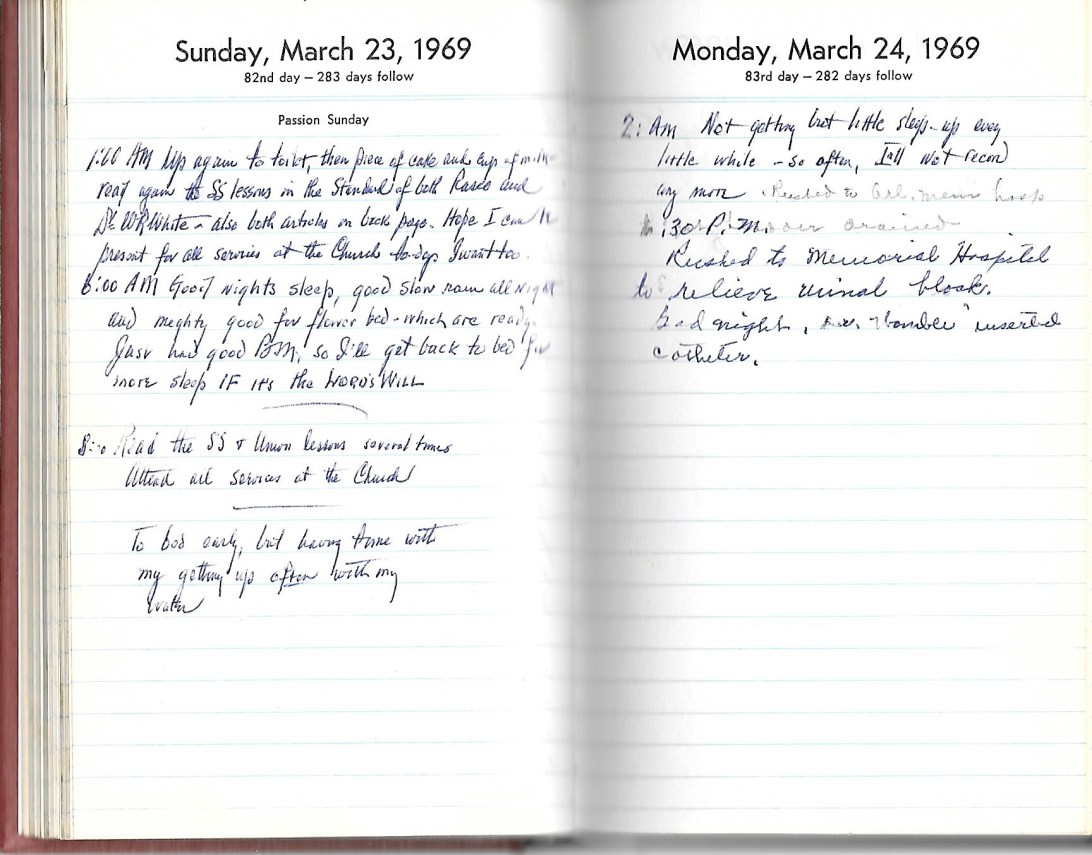 Sunday, March 23, 1969
82nd day – 283 days follow
Passion Sunday
1:10 AM Up again to toilet, then piece of cake and cup of milk
read again the SS lessons in the Standard of both Rasco and
Dr. WR White – also both articles on back page. Hope I can be
present for all services at the Church to-day I want too.
6:00 AM Good nights sleep, good slow rain all night
and mighty good for flower bed – which are ready.
Just had good BM, so I'll get back to bed for
more sleep IF its the LORD'S WILL
8:00 Read the SS & Union lessons several times
Attend all services at the Church
To bed early, but having time with
my getting up often with my
water
Monday, March 24, 1969
83rd day – 282 days follow
2: Am Not getting but little sleep – up every
little while – so often, I'll not record
any more Rushed to Arl. mem hosp
:30 P.M. drained
Rushed to Memorial Hospital
to relieve urinal block.
Bad night, inserted
catheter.